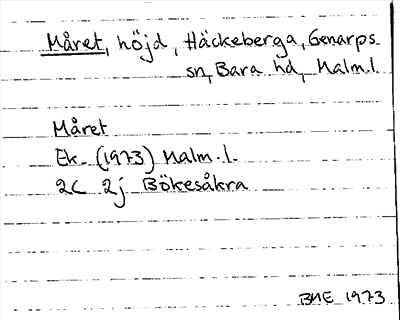 Måret, höjd, Häckeberga, Genarps
sn, Bara hd, Malm.l.
Måret
Ek. (1973) Malm.l.
2C 2j Bökesåkra
BHE 1973